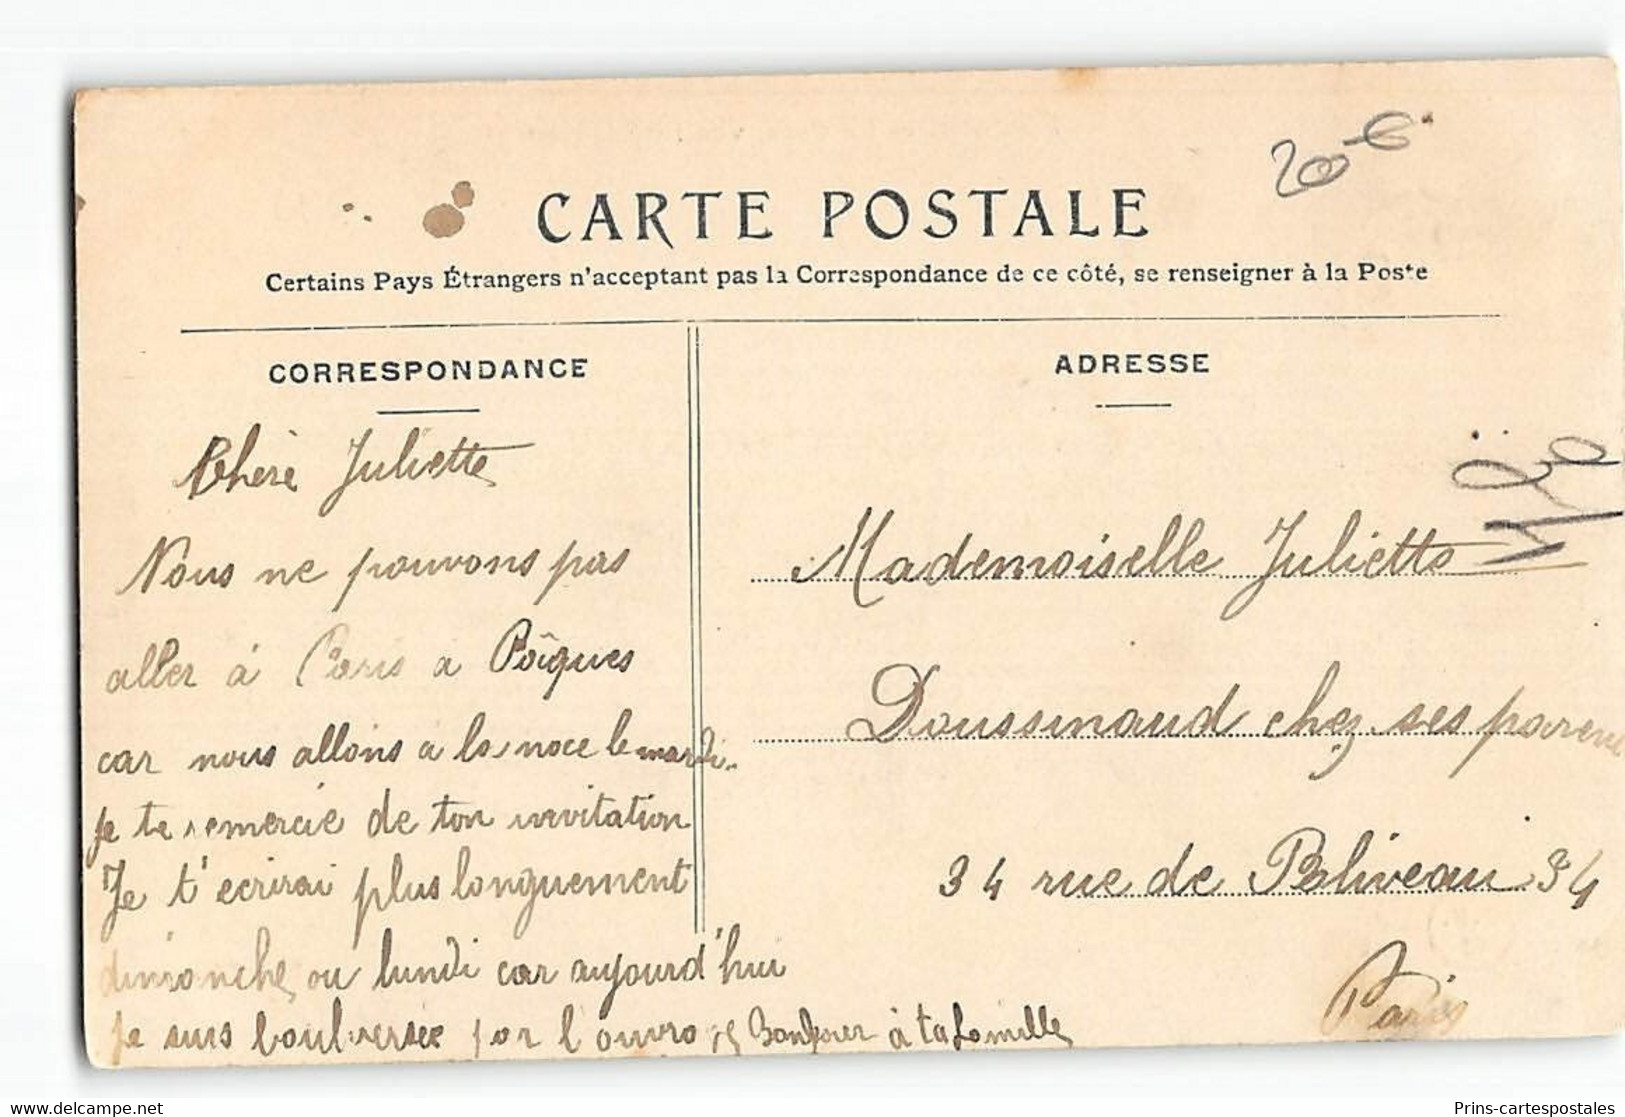 200-€
CARTE POSTALE
Certains Pays Étrangers n'acceptant pas la Correspondance de ce côté, se renseigner à la Poste
CORRESPONDANCE
Cherè Juliette
Nous ne pouvons pas
aller à Paris a Pâîques
car nous allons a la noce le mardi.
je te remercie de ton invitation
Je t'ecrirai plus longuement
dimanche ou lundi car aujourd'hui
je suis boulversée par l'ouvrage Bonjour à ta famille
ADRESSE
Mademoiselle Juliette
Doussinaud chez ses parents
34 rue de Poliveau 34
Paris
Prins-cartespostales
delcampe.net